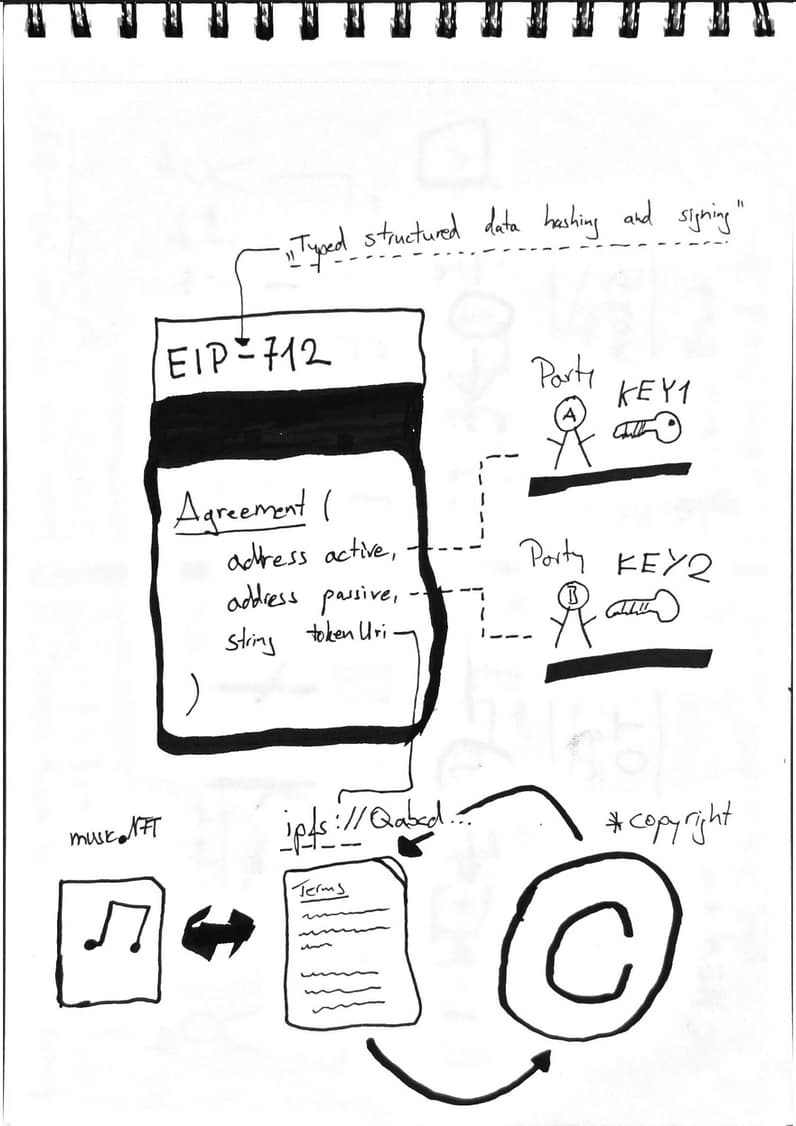 „Typed structured data hashing and signing"
EIP-712
Party
A
KEY1
Agreement (
address active,
address passive,
string tokenUri
)
Party
B
KEY2
ipfs://Qabcd...
music NFT
*copyright
Terms
C